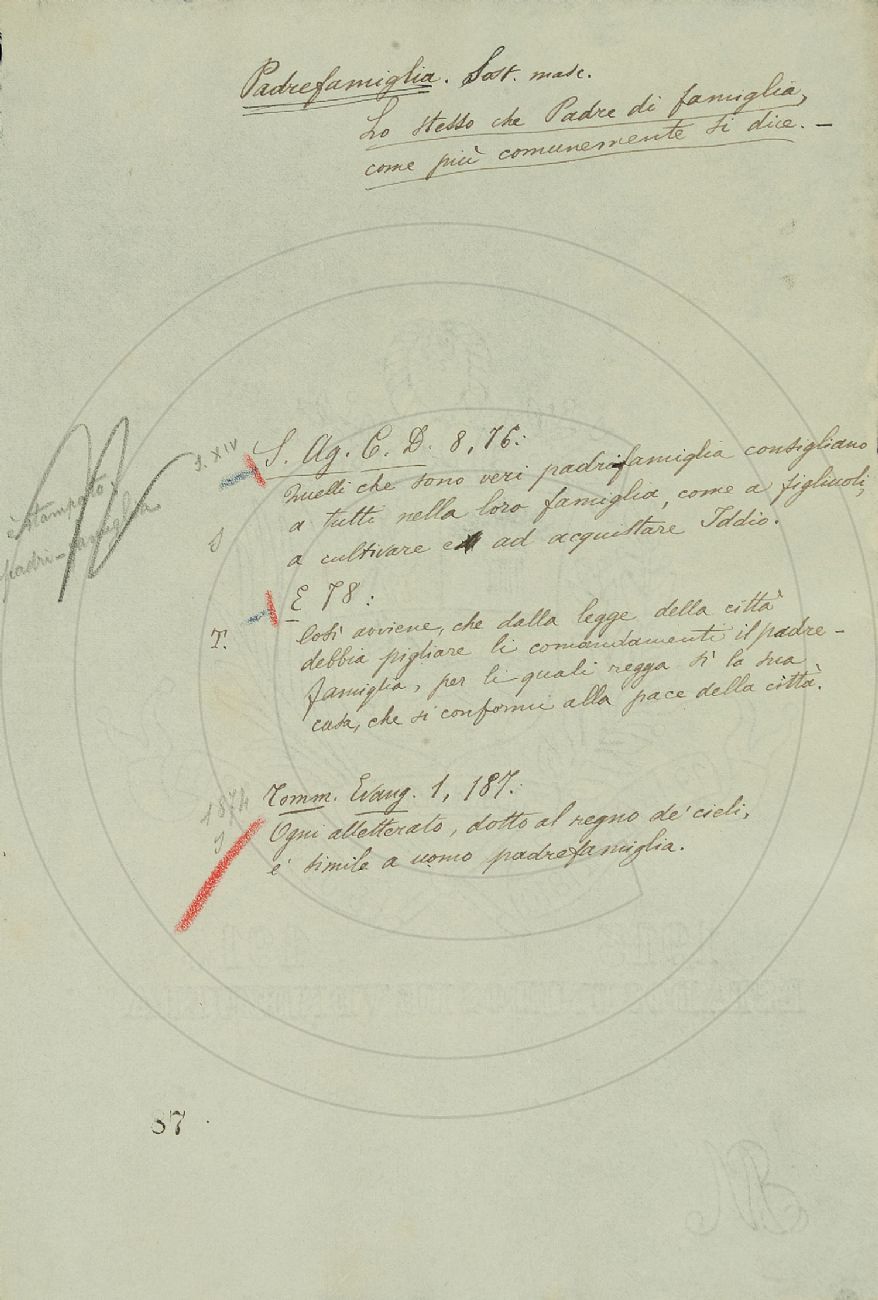 Padrefamiglia. Sost. masc.
Lo stesso che Padre di famiglia,
come più comunemente si dice. —
S. XIV
S. Ag. C. D. 8, 76:
Quelli che sono veri padrifamiglia consigliano
a tutti nella loro famiglia, come a figliuoli,
a cultivare ed ad acquistare Iddio.
è stampato
padri-famiglia
S
E 78:
T.
Così avviene, che dalla legge della città
debbia pigliare li comandamenti il padre-
famiglia, per li quali regga sì la sua
casa, che si conformi alla pace della città.
1874
S
Tomm. Evang. 1, 187:
Ogni alletterato, dotto al regno de' cieli,
e' simile a uomo padrefamiglia.
87